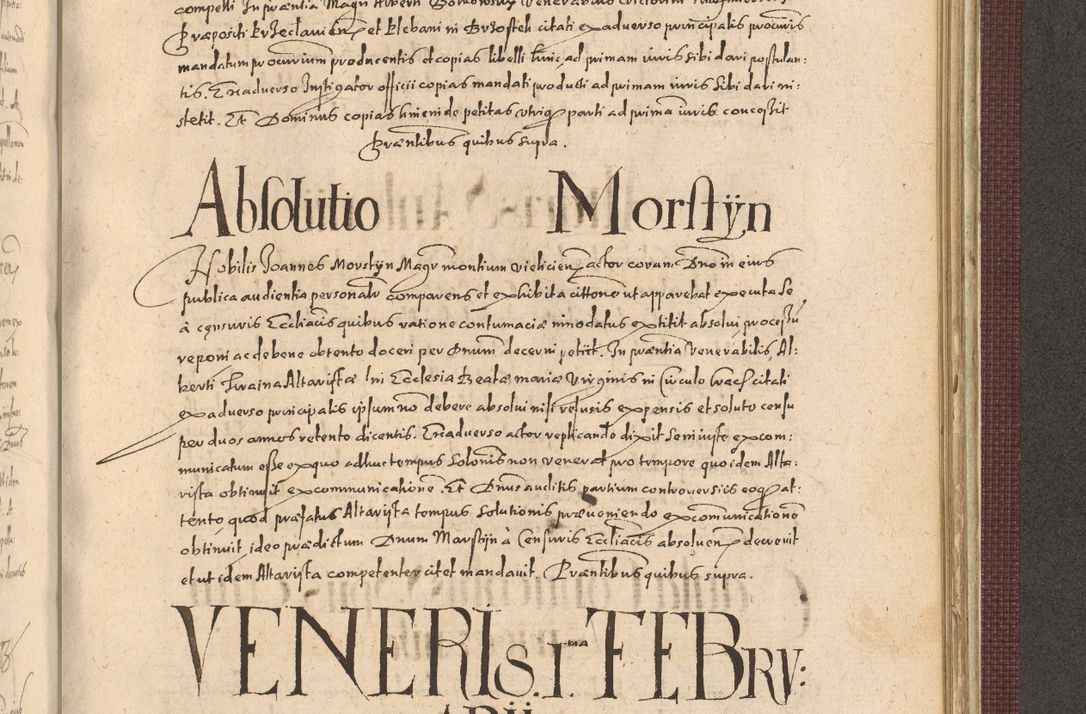 compelli In præntia Magri Alberti
Præpositi Krzeclavien et Plebani in Brzostek citati ex adverso principalis procuris
mandatum procurium producentis et copias libelli hinc ad primam iuris sibi dari postulan:
tis. Et ex adverso Instigator officii copias mandati producti ad primam iuris sibi dari in:
stetit. Et Dominus copias hincinde petitas utriqz parti ad prima iuris concessit
Præntibus quibus supra.
Absolutio Morstÿn
Nobilis Joannes Morstÿn Magr montium vielicien actor coram Dno in eius
publica audientia personalr comparens et exhibita cittone ut apparebat executa se
à censuris Eccliacis quibus ratione contumaciæ innodatus extitit absolui processū
reponi ac debene obtento doceri per Dnum decerni petiit. In præntia Venerabilis Al:
berti Altaristæ In Ecclesia Beatæ mariæ Virginis in Circulo Crac citati
ex adverso principalis ipsum no debere absolui nisi refusis expensis et soluto censu
per duos annos retento dicentis. Et ex adverso actor replicando dixit se iniuste excom:
municatum esse ex quo adhuc tempus Solonis non venerat pro tempore quo idem Alta:
rista obtinuit excommunicationē. Et Dnus auditis partium controversiis eoqz at:
tento quod præfatus Altarista tempus Solutionis præveniendo excōmunicationē
obtinuit, ideo prædictum Dnum Morstÿn à Censuris Eccliacis absoluen decrevit
et ut idem Altarista competenter citet mandavit. Præntibus quibus supra.
VENERIS. I.ma FEBRV:
ARII